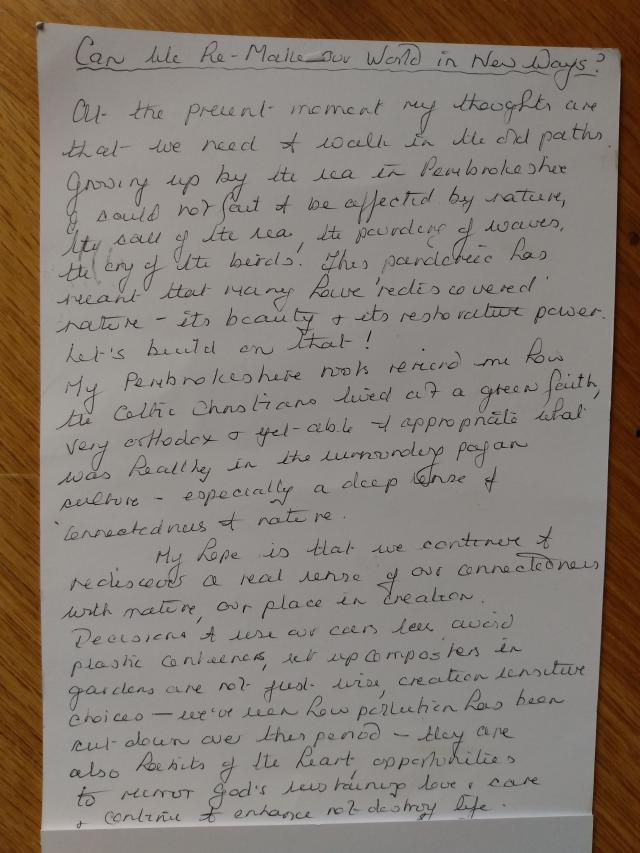 Can We Re-Make our World in New Ways?
At the present moment my thoughts are
that we need to walk in the old paths.
Growing up by the sea in Pembrokeshire
I could not fail to be affected by nature,
the call of the sea, the pounding of waves,
the cry of the birds. This pandemic has
meant that many have 'rediscovered'
nature - its beauty & its restorative power.
Let's build on that!
My Pembrokeshire roots remind me how
the Celtic Christians lived out a green faith,
very orthodox & yet able to appropriate what
was healthy in the surrounding pagan
culture - especially a deep sense of
connectedness to nature.
My hope is that we continue to
rediscover a real sense of our connectedness
with nature, our place in creation.
Decisions to use our cars less, avoid
plastic containers, set up composters in
gardens are not just wise, creation sensitive
choices - we've seen how pollution has been
cut down over this period - they are
also habits of the heart, opportunities
to mirror God's sustaining love & care
& continue to enhance not destroy life.